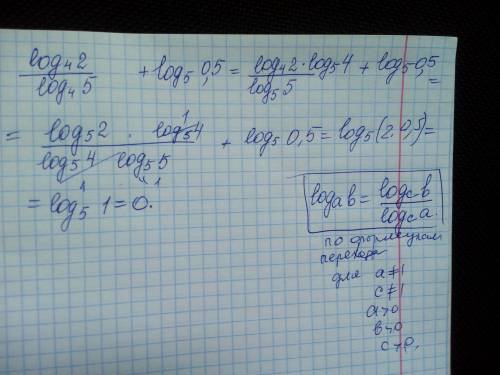 log₄2/log₄5 + log₅0,5 = log₄2·log₅4/log₅5 + log₅0,5 =
= log₅2/log₅4 · log₅4/log₅5 + log₅0,5 = log₅(2·0,5) =
= log₅1 = 0.
logₐb = log_c b/log_c a
по формулам
перехода
для a≠1
c≠1
a>0
b>0
c>0.